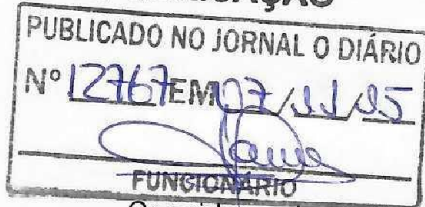 PUBLICADO NO JORNAL O DIÁRIO
Nº 12767 EM 07/11/95
FUNCIONÁRIO